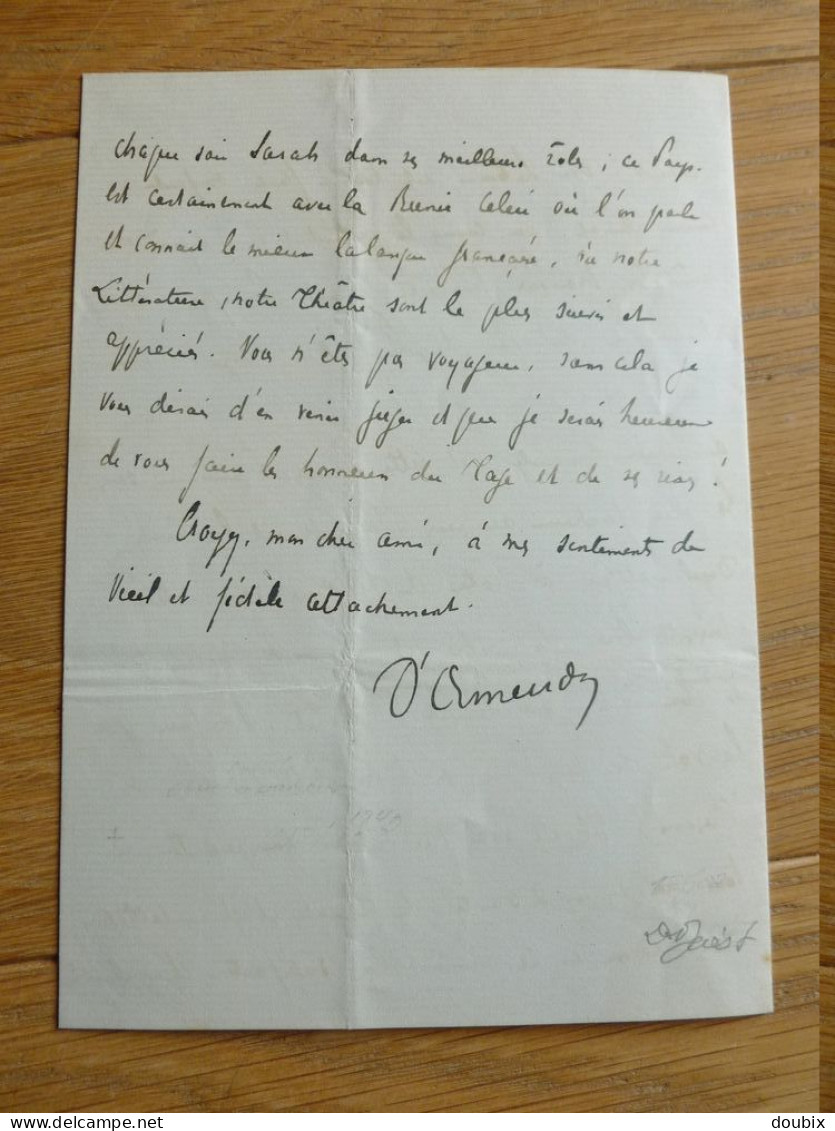 chaque soir Sarah dans ses meilleurs rôles ; ce Pays
est certainement avec la Russie celui où l'on parle
et connait le mieux la langue française, où notre
Littérature, notre Théâtre sont le plus suivis et
appréciés. Vous n'êtes pas voyageur, sans cela je
vous dirais d'en venir juger et que je serais heureux
de vous faire les honneurs du Tage et de ses rives !
Croyez, mon cher ami, à mes sentiments de
vieil et fidèle attachement.
D'Ormesson
delcampe.net
doubix